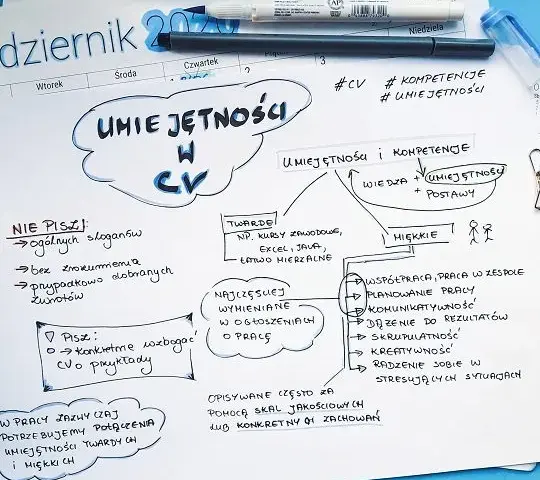 dziernik 2020
Niedziela
Wtorek
Środa
Czwartek
2
3
# CV # KOMPETENCJE
# UMIEJĘTNOŚCI
UMIEJĘTNOŚCI
W
CV
UMIEJĘTNOŚCI i KOMPETENCJE
WIEDZA + UMIEJĘTNOŚCI
+ POSTAWY
NIE PISZ!:
→ ogólnych sloganów
→ bez zrozumienia
→ przypadkowo dobranych
zwrotów
TWARDE
NP. KURSY ZAWODOWE,
EXCEL, JAVA,
ŁATWO MIERZALNE
MIĘKKIE
NAJCZĘŚCIEJ
WYMIENIANE
W OGŁOSZENIACH
O PRACĘ
WSPÓŁPRACA, PRACA W ZESPOLE
PLANOWANIE PRACY
KOMUNIKATYWNOŚĆ
DĄŻENIE DO REZULTATÓW
SKRUPULATNOŚĆ
KREATYWNOŚĆ
RADZENIE SOBIE W
STRESUJĄCYCH SYTUACJACH
PISZ:
→ konkretnie wzbogacić
CV o przykłady
OPISYWANE CZĘSTO ZA
POMOCĄ SKAL JAKOŚCIOWYCH
LUB KONKRETNYCH ZACHOWAŃ
W PRACY ZAZWYCZAJ
POTRZEBUJEMY POŁĄCZENIA
UMIEJĘTNOŚCI TWARDYCH
I MIĘKKICH